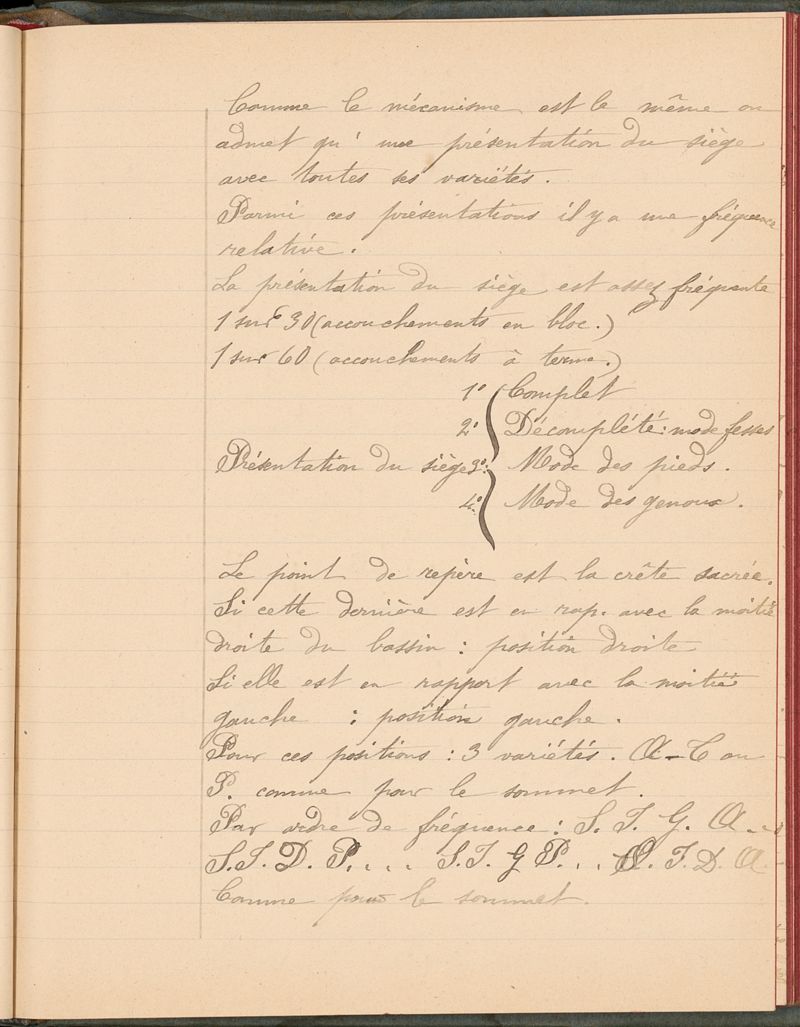 Comme le mécanisme est le même on
admet qu'une présentation du siège
avec toutes ses variétés.
Parmi ces présentations il y a une fréquence
relative.
La présentation du siège est assez fréquente
1 sur 30 (accouchements en bloc.)
1 sur 60 (accouchements à terme.)
1° Complet
2° Décomplété: mode fesses
Présentation du siège 3°: Mode des pieds.
4° Mode des genoux.
Le point de repère est la crête sacrée.
Si cette dernière est en rap. avec la moitié
droite du bassin : position droite
Si elle est en rapport avec la moitié
gauche : position gauche.
Pour ces positions : 3 variétés. A-T ou
P. comme pour le sommet.
Par ordre de fréquence : S. I. G. A...
S.I. D. P.... S.I. G P... S. I. D. A.
Comme pour le sommet.